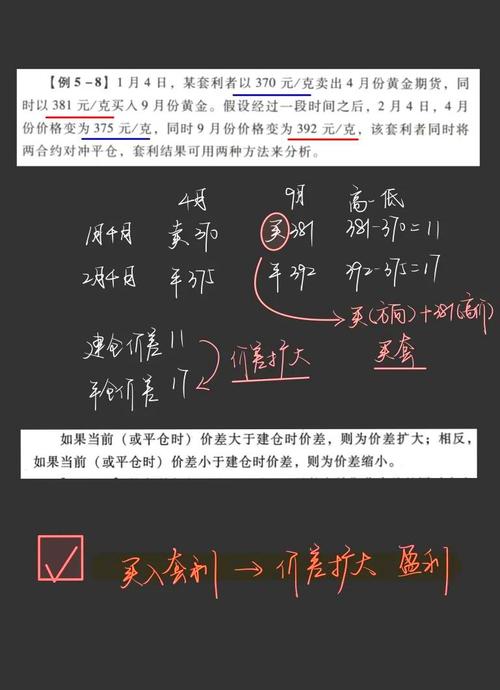 【例5-8】1月4日，某套利者以370元/克卖出4月份黄金期货，同
时以381元/克买入9月份黄金。假设经过一段时间之后，2月4日，4月
份价格变为375元/克，同时9月份价格变为392元/克，该套利者同时将
两合约对冲平仓，套利结果可用两种方法来分析。
4月 9月 高-低
1月4日 卖370 买381 381-370=11
2月4日 平375 平392 392-375=17
买(方向)+381(高价)
买套
建仓价差 11
平仓价差 17
价差扩大
如果当前（或平仓时）价差大于建仓时价差，则为价差扩大；相反，
如果当前（或平仓时）价差小于建仓时价差，则为价差缩小。
买入套利→价差扩大 盈利